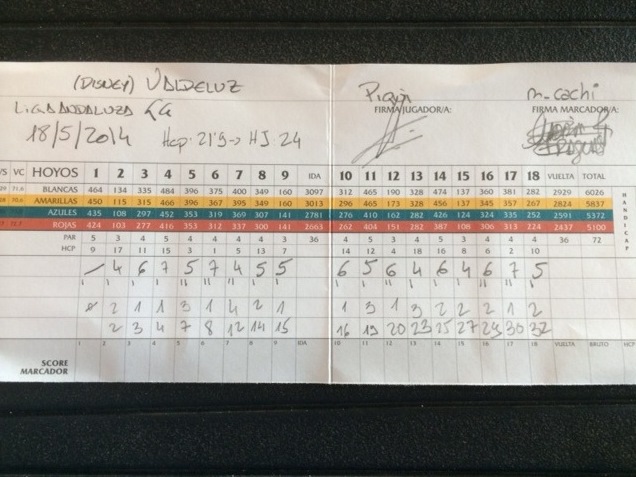 (DISNEY) VALDELUZ Piqui M-Cachi
LIGA ANDALUZA FIRMA JUGADOR/A: FIRMA MARCADOR/A:
18/5/2014 Hcp: 21'9 -> HJ: 24
VS VC HOYOS 1 2 3 4 5 6 7 8 9 IDA 10 11 12 13 14 15 16 17 18 VUELTA TOTAL
BLANCAS 464 134 335 484 396 375 400 349 160 3097 312 465 190 328 474 137 360 381 282 2929 6026
AMARILLAS 450 115 315 466 396 367 395 349 160 3013 296 465 173 328 456 137 345 357 267 2824 5837
AZULES 435 108 297 452 353 319 369 307 141 2781 276 410 162 282 426 124 324 335 252 2591 5372
ROJAS 424 103 277 416 353 312 337 300 141 2663 262 404 151 282 387 108 306 313 224 2437 5100
HANDICAP
PAR 5 3 4 5 4 4 4 4 3 36 4 5 3 4 5 3 4 4 4 36 72
HCP 9 17 11 15 3 1 5 13 7 14 12 4 18 16 8 6 2 10
4 6 7 5 7 4 5 5 6 5 6 4 6 4 6 7 5
0 2 1 1 3 1 4 2 1 1 3 1 3 2 2 2 1 2
2 3 4 7 8 12 14 15 16 19 20 23 25 27 29 30 32
SCORE MARCADOR 1 2 3 4 5 6 7 8 9 IDA 10 11 12 13 14 15 16 17 18 VUELTA BRUTO HCP